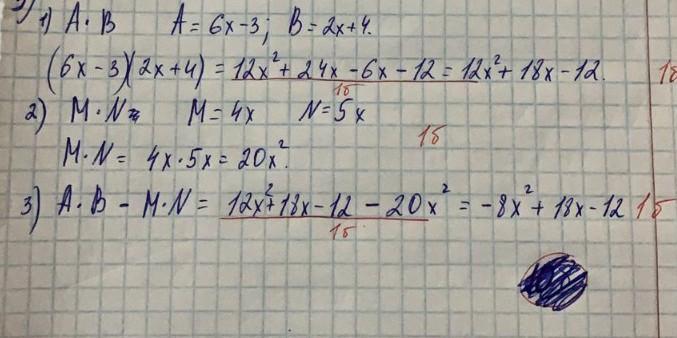 1) A · B A = 6x-3; B = 2x+4.
(6x-3)(2x+4) = 12x²+24x-6x-12 = 12x²+18x-12. 1б
1б
2) M·N= M=4x N=5x
1б
M·N = 4x·5x = 20x².
3) A·B - M·N = 12x²+18x-12-20x² = -8x²+18x-12 1б
1б